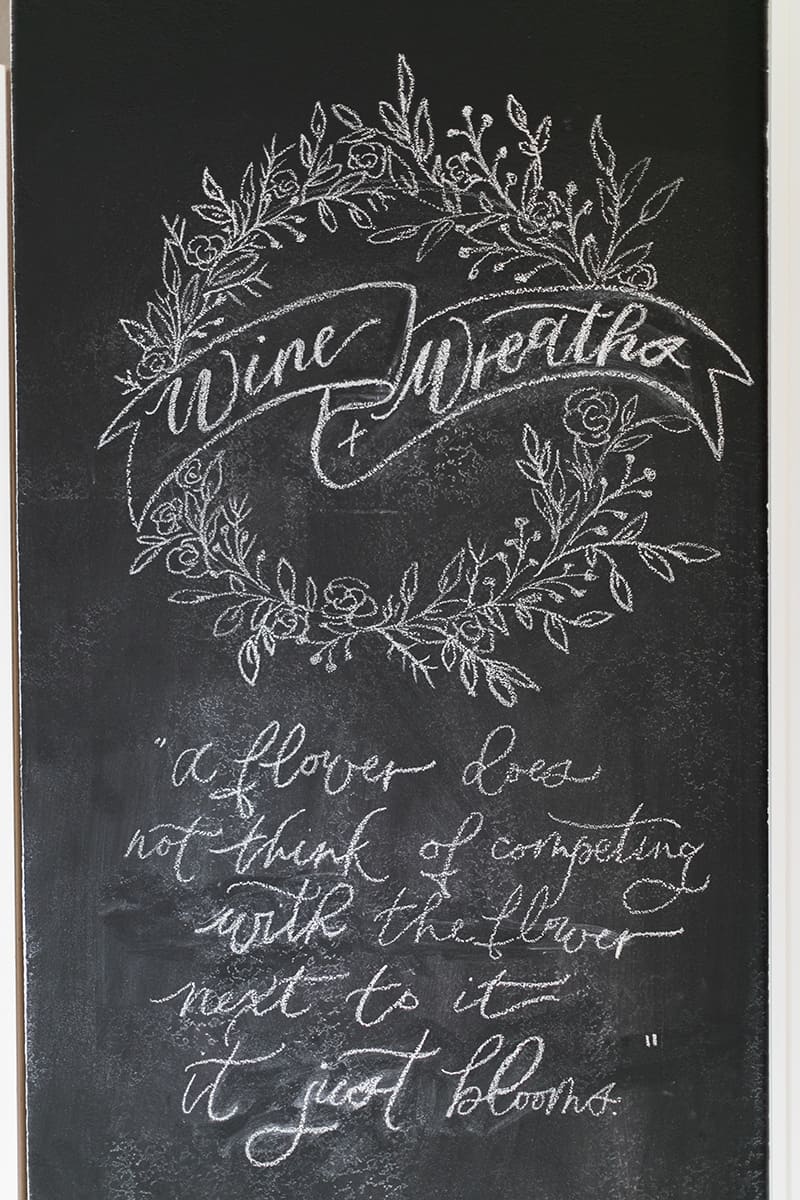 Wine + Wreaths
"a flower does
not think of competing
with the flower
next to it
it just blooms."